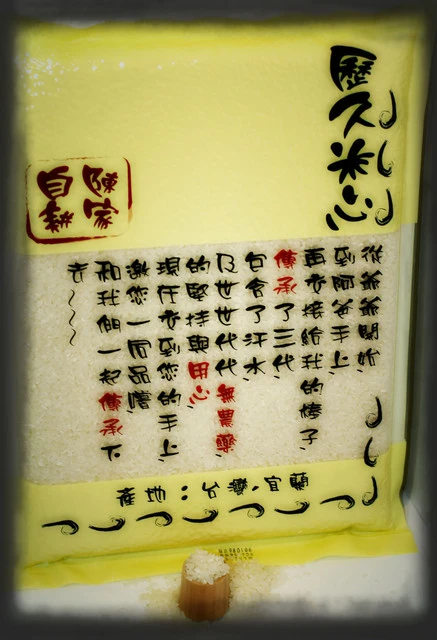 歷久米心
陳家
自耕
從爺爺開始、
到阿爸手上、
再交接給我的
傳承了三代、
包含了汗水、
及世世代代無農藥
的堅持與用心
現在交到您的手上、
邀您一同品嚐
和我們一起傳承下
去~~~
產地：台灣．宜蘭